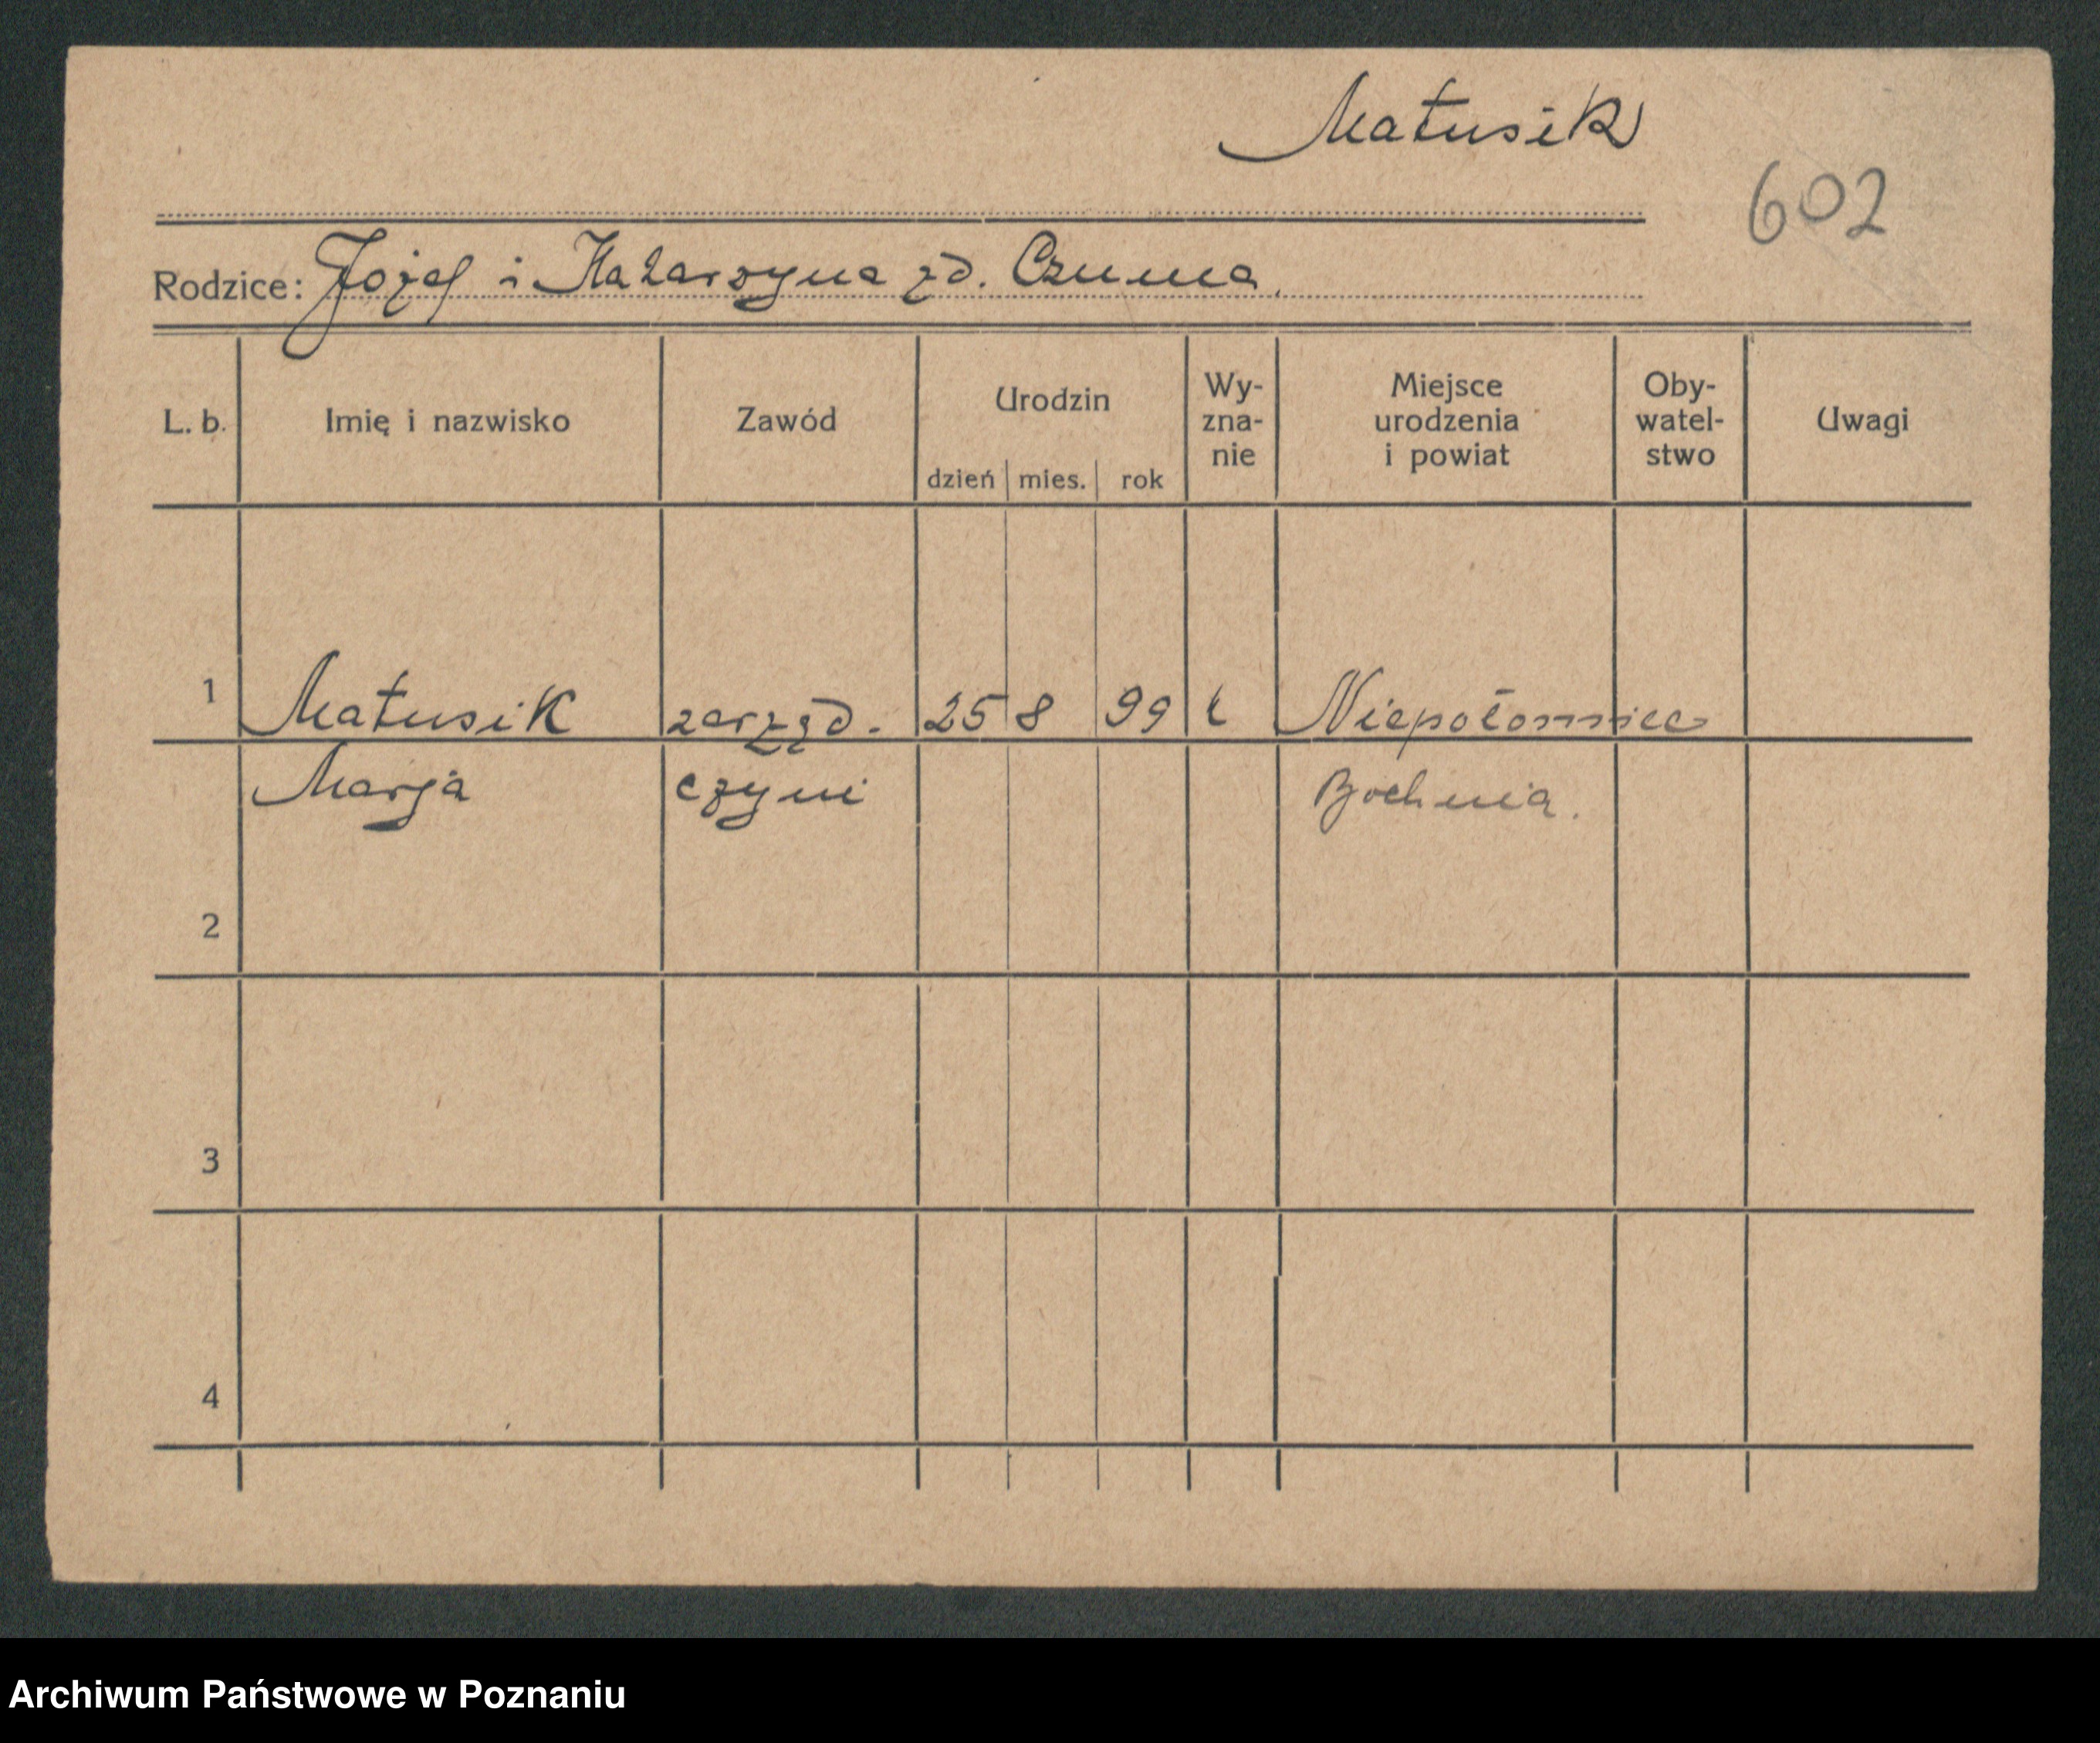 Matusik
602
Rodzice: Jożef i Katarzyna zd. Czuma.
L. b. Imię i nazwisko Zawód Urodzin dzień mies. rok Wy-zna-nie Miejsce urodzenia i powiat Oby-watel-stwo Uwagi
1 Matusik zarząd. 25 8 99 k Niepołomice
Marja czyni Bochnia.
2
3
4
Archiwum Państwowe w Poznaniu